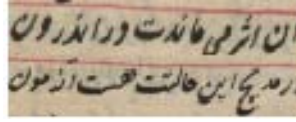 ان اثر می ماندت در اندرون
در مدیح این حالتت هست آزمون